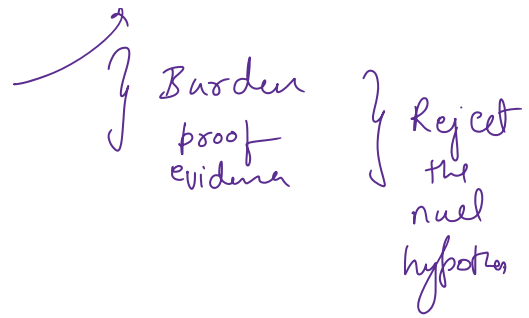 Burden
proof
evidence
Reject
the
null
hypothes